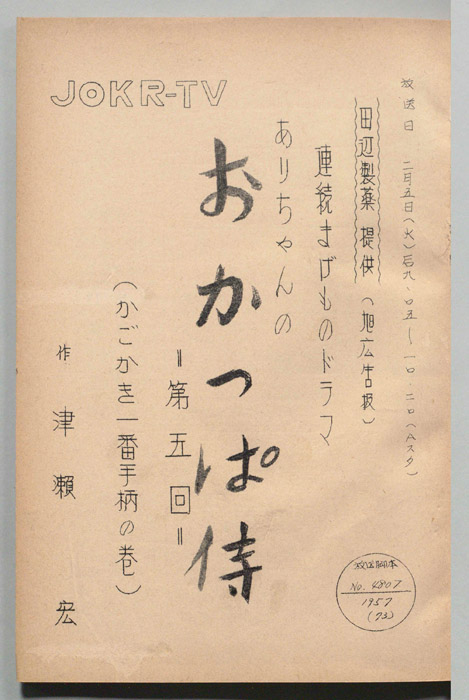 放送日 二月五日(火)后九、〇五〜一〇.二〇(Aスタ)
田辺製薬 提供 (旭広告扱)
連続まげものドラマ
ありちゃんの
おかっぱ侍
=第五回=
(かごかき一番手柄の巻)
作 津瀬 宏
JOKR-TV
放送脚本
No. 4807
1957
(73)